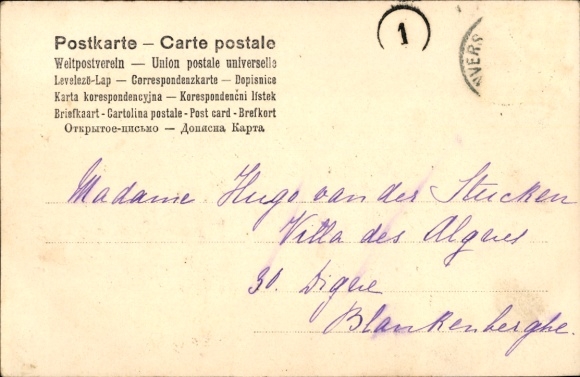 Postkarte – Carte postale
Weltpostverein — Union postale universelle
Levelező-Lap — Correspondenzkarte — Dopisnice
Karta korespondencyjna — Korespondenční lístek
Briefkaart - Cartolina postale - Post card - Brefkort
Открытое-письмо — Дописна Карта
1
AVERS
Madame Hugo van der Stucken
Villa des Algues
30. Digue
Blankenberghe.